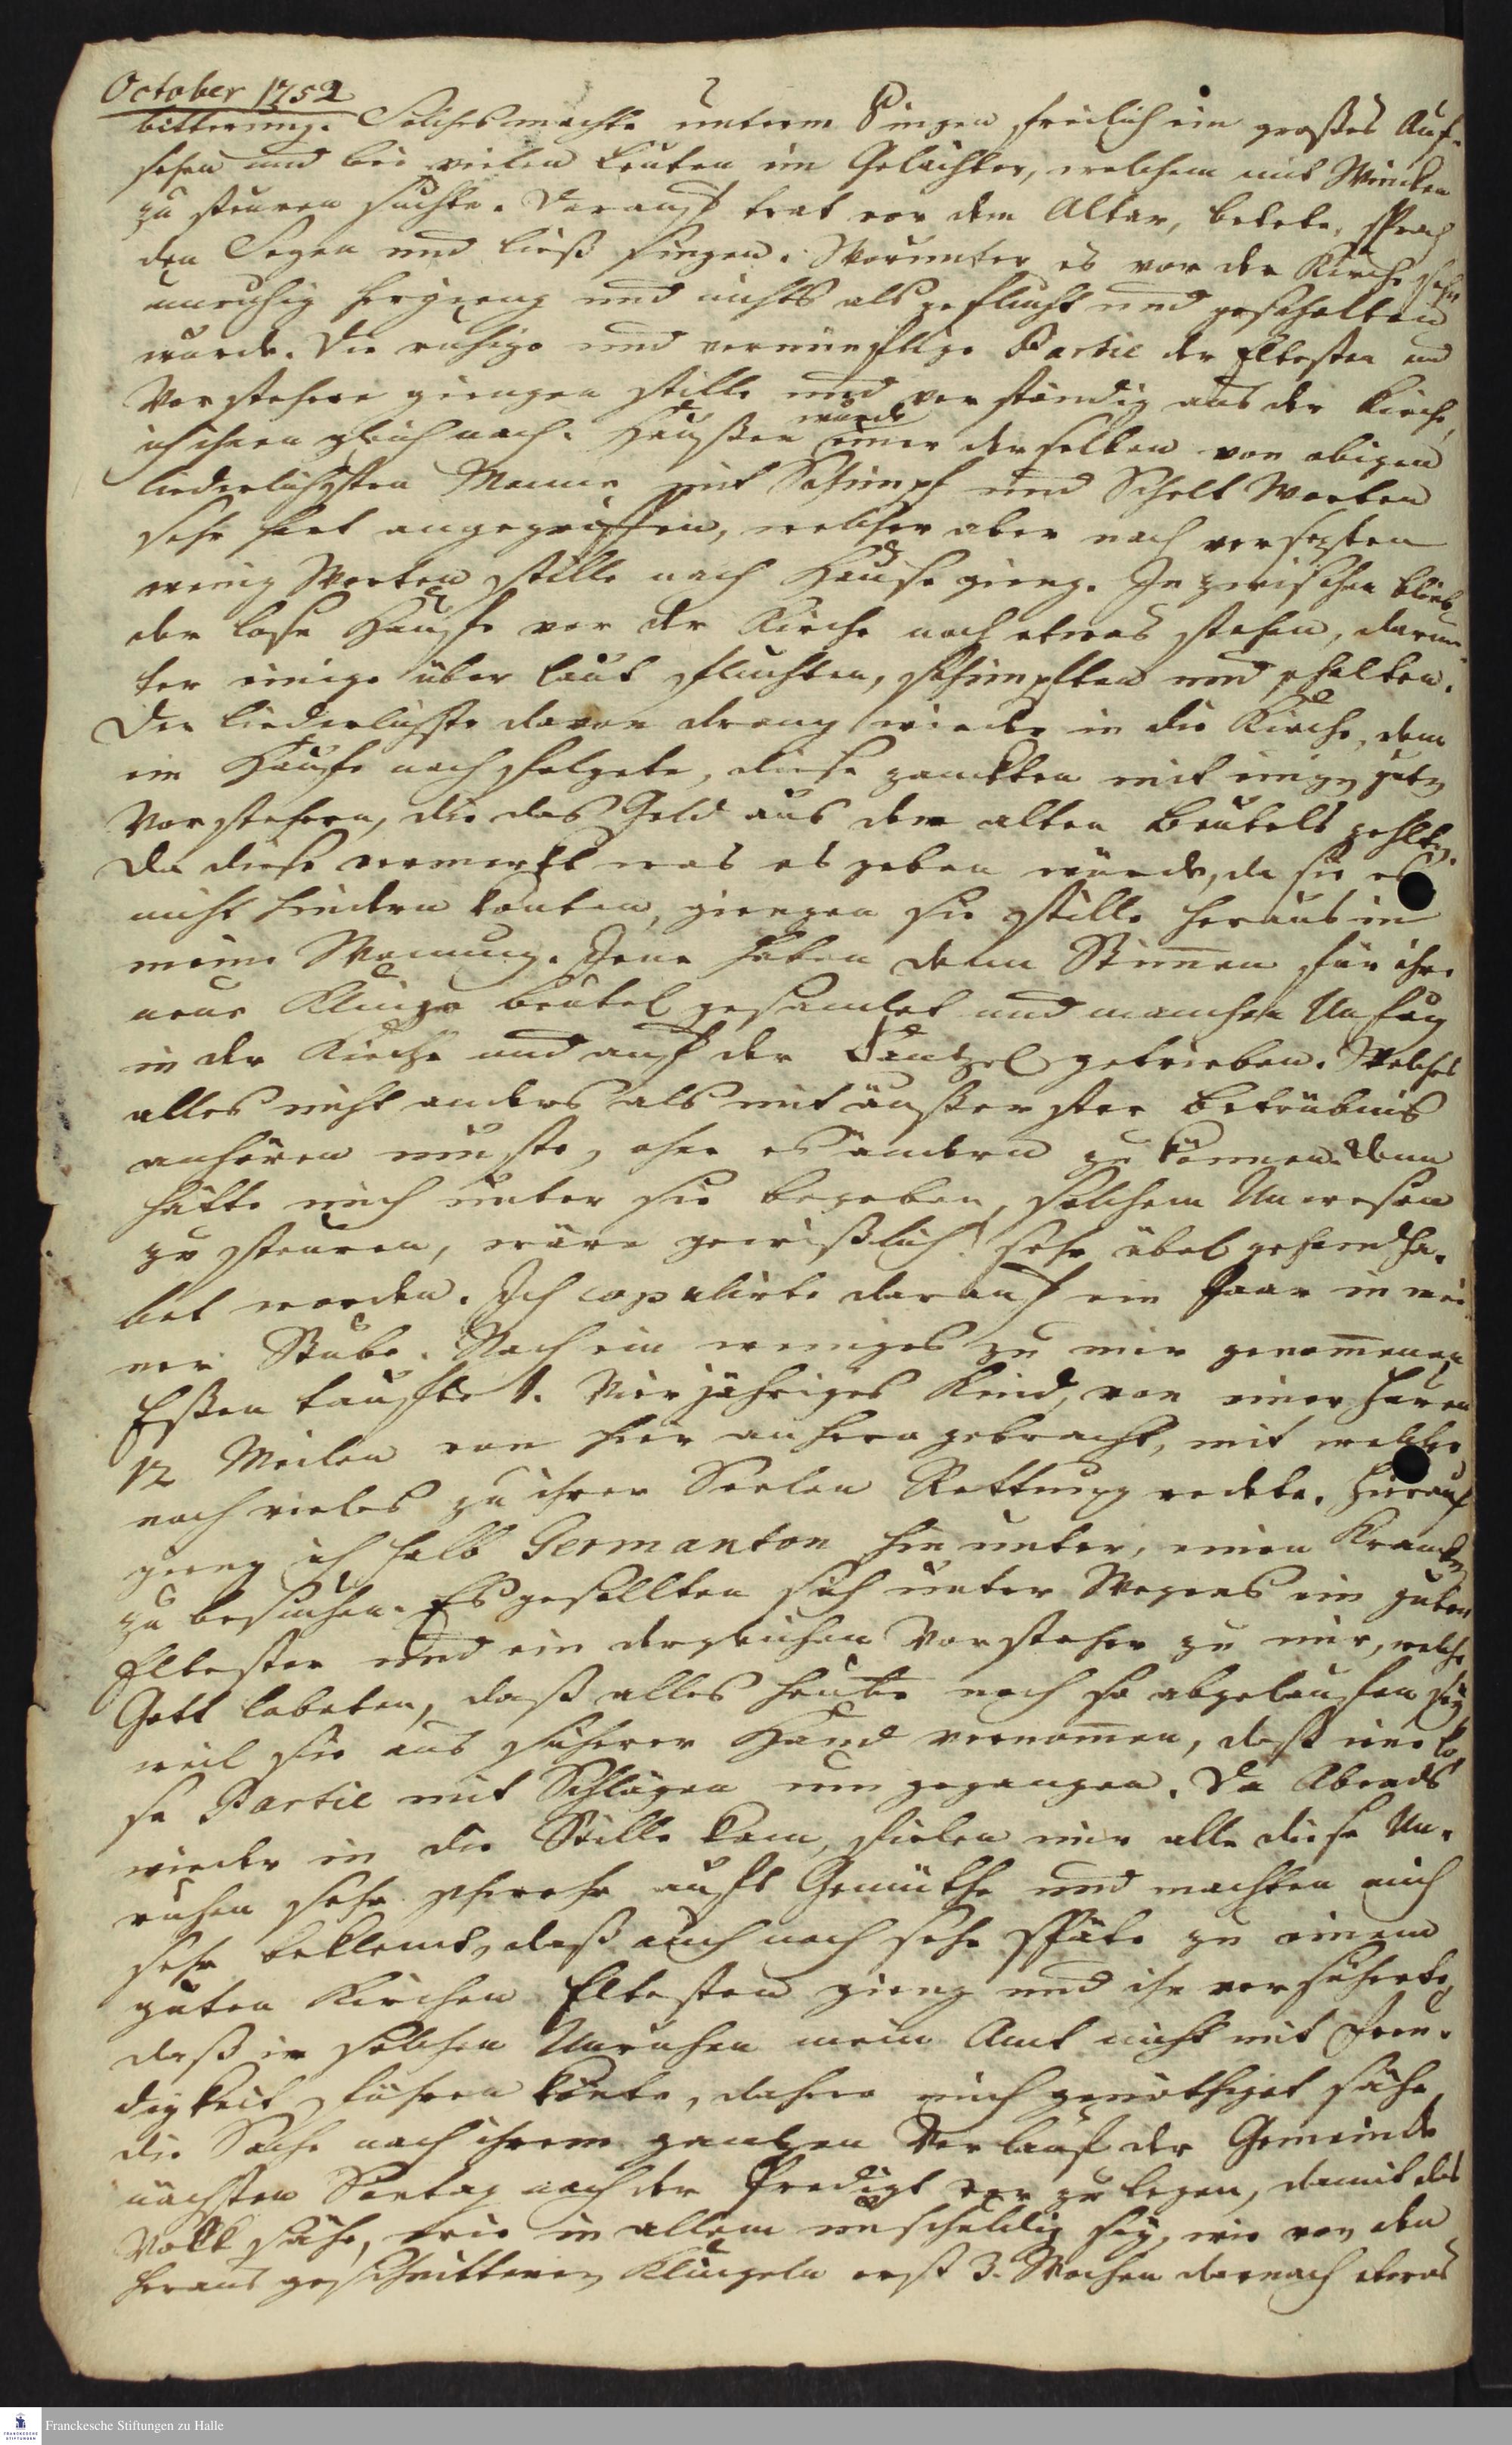 October 1752
bitterung. Solches machte unterm Singen freilich ein großes Auf-
sehen und bei vielen Leuten ein Gelächter, welchem mit Wincken
zu steuren suchte. Darauf trat vor dem Altar, betete, sprach
den Segen und ließ singen. Worunter es vor der Kirche sehr
unruhig hergieng und nichts als geflucht und gescholten
wurde. Die ruhige und vernünftige Partie der Eltesten und
Vorstehere giengen stille und verständig aus der Kirche,
ich ihnen gleich nach. Haußen wurde einer derselben von obigen
liederlichsten Manne mit Schimpf und Schelt Worten
sehr hart angegriffen, welcher aber nach versezten
wenig Worten stille nach Hause gieng. Inzwischen blieb
der lose Haufe vor der Kirche noch etwas stehen, darun-
ter einige über laut fluchten, schimpften und schalten.
Der liederlichste davon drang wieder in die Kirche, dem
ein Haufe nachfolgete, diese zanckten mit einigen guten
Vorstehern, die das Geld aus dem alten Beutels zehlten.
Da diese vermerckt was es geben würde, da sie es
nicht hindern konten, giengen sie stille heraus in
meine Wonung. Jene haben denn Stimmen für ihre
neue Klinge beutel gesamlet und manchen Unfug
in der Kirche und auf der Cantzel getrieben. Welches
alles nicht anders als mit äußerster Betrübnis
anhören muste, ohne es ändern zu können. Denn
hätte mich unter sie begeben, solchem Unwesen
zu steuren, wäre gewißlich sehr übel gehandha-
bet worden. Ich copulirte darauf ein Paar in mei-
ner Stube. Nach ein weniges zu mir genommenen
Essen taufte 1. Vierjähriges Kind, von einer Huren
12 Meilen von hier anhero gebracht, mit welcher
noch vieles zu ihrer Seelen Rettung redete. Hierauf
gieng ich halb Germanton hinunter, einen Krancken
zu besuchen. Es gesellten sich unter Weges ein guter
Eltester und ein dergleichen Vorsteher zu mir, welche
Gott lobeten, daß alles heute noch so abgelaufen sey,
weil sie aus sicherer Hand vernommen, daß jene lo-
se Partie mit Schlägen um gegangen. Da Abends
wieder in die Stille kam, fielen mir alle diese Un-
ruhen sehr schwehr aufs Gemüthe und machten mich
sehr beklemt, daß auch noch sehr späte zu einem
guten Kirchen Eltesten gieng und ihn versicherte,
daß in solchen Unruhen mein Amt nicht mit Freu-
digkeit führen könte, dahero mich genöthiget sähe,
die Sache nach ihrem gantzen Verlauf der Gemeinde
nächsten Sontag nach der Predigt vor zu legen, damit das
Volk sähe, wie in allem unschuldig sey, wie von den
heraus geschnittenen Klingeln erst 3. Wochen darnach etwas
Franckesche Stiftungen zu Halle